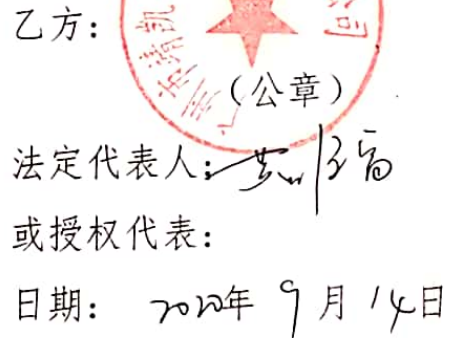 乙方:
(公章)
法定代表人:
或授权代表:
日期: 2020年9月14日